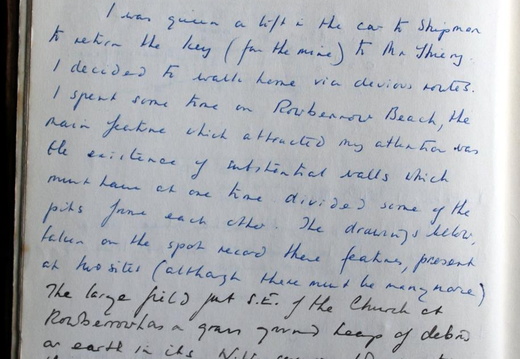 I was given a lift in the car to Shipman
to return the key (for the mine) to Mr Thiery.
I decided to walk home via devious routes.
I spent some time on Rowberrow Beach, the
main feature which attracted my attention was
the existence of substantial walls which
must have at one time divided some of the
pits from each other. The drawings below,
taken on the spot record these features, present
at two sites (although there must be many more)
The large field just S.E. of the Church at
Rowberrow has a grass ground heap of debris
or earth in its N.W.